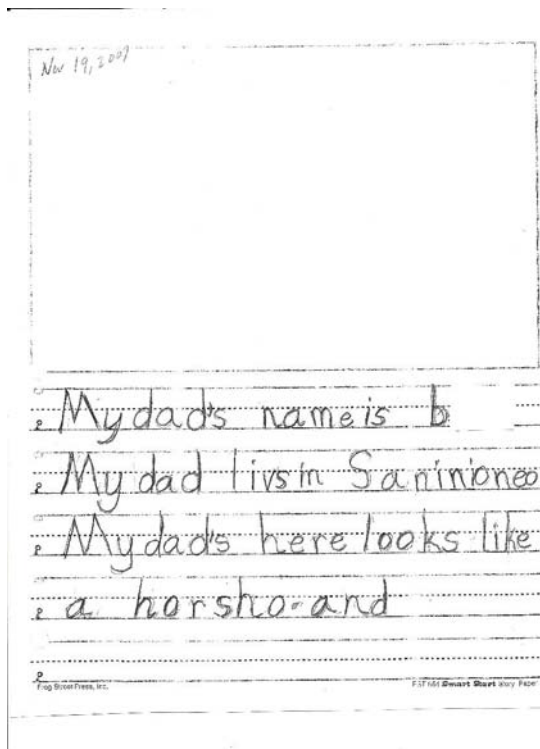 Nov 19, 2007
My dad's name is b
My dad livs in Saninioneo
My dad's here looks like
a horsho-and
Frog Street Press, Inc.
Smart Start Story Paper